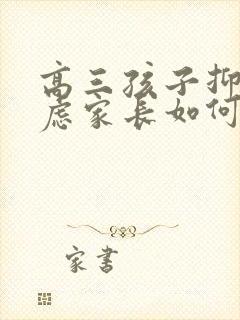 高三孩子抑
虑家长如何
家书